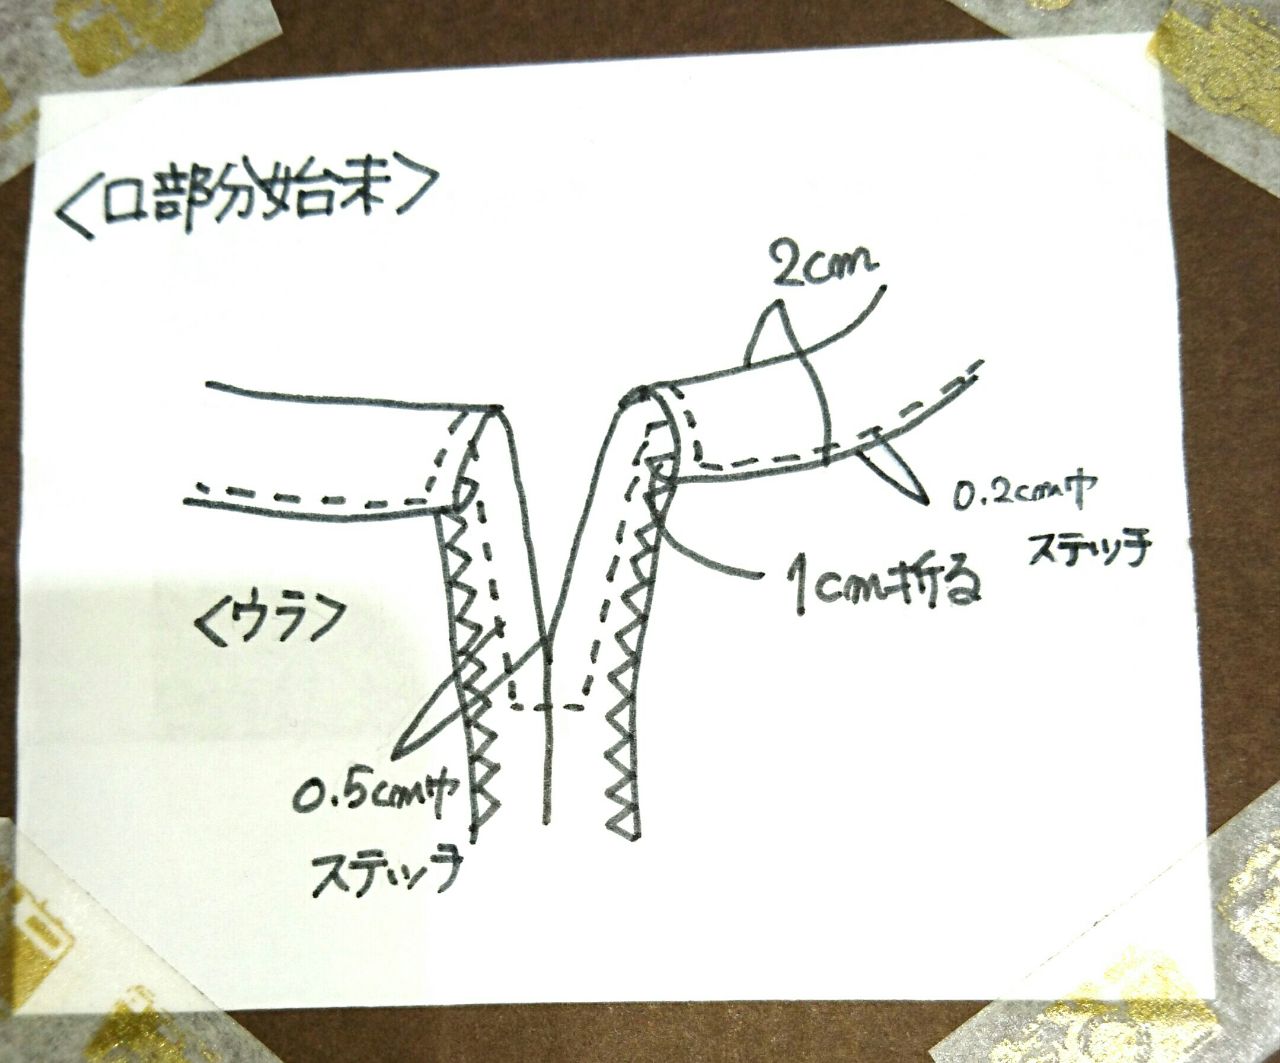 <口部分始末>
2cm
0.2cm巾
ステッチ
1cm折る
<ウラ>
0.5cm巾
ステッチ